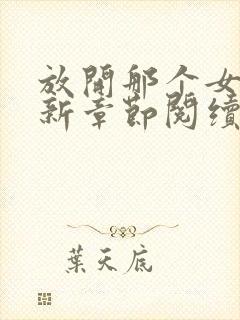 放開那个女
新章節閱續
葉天底